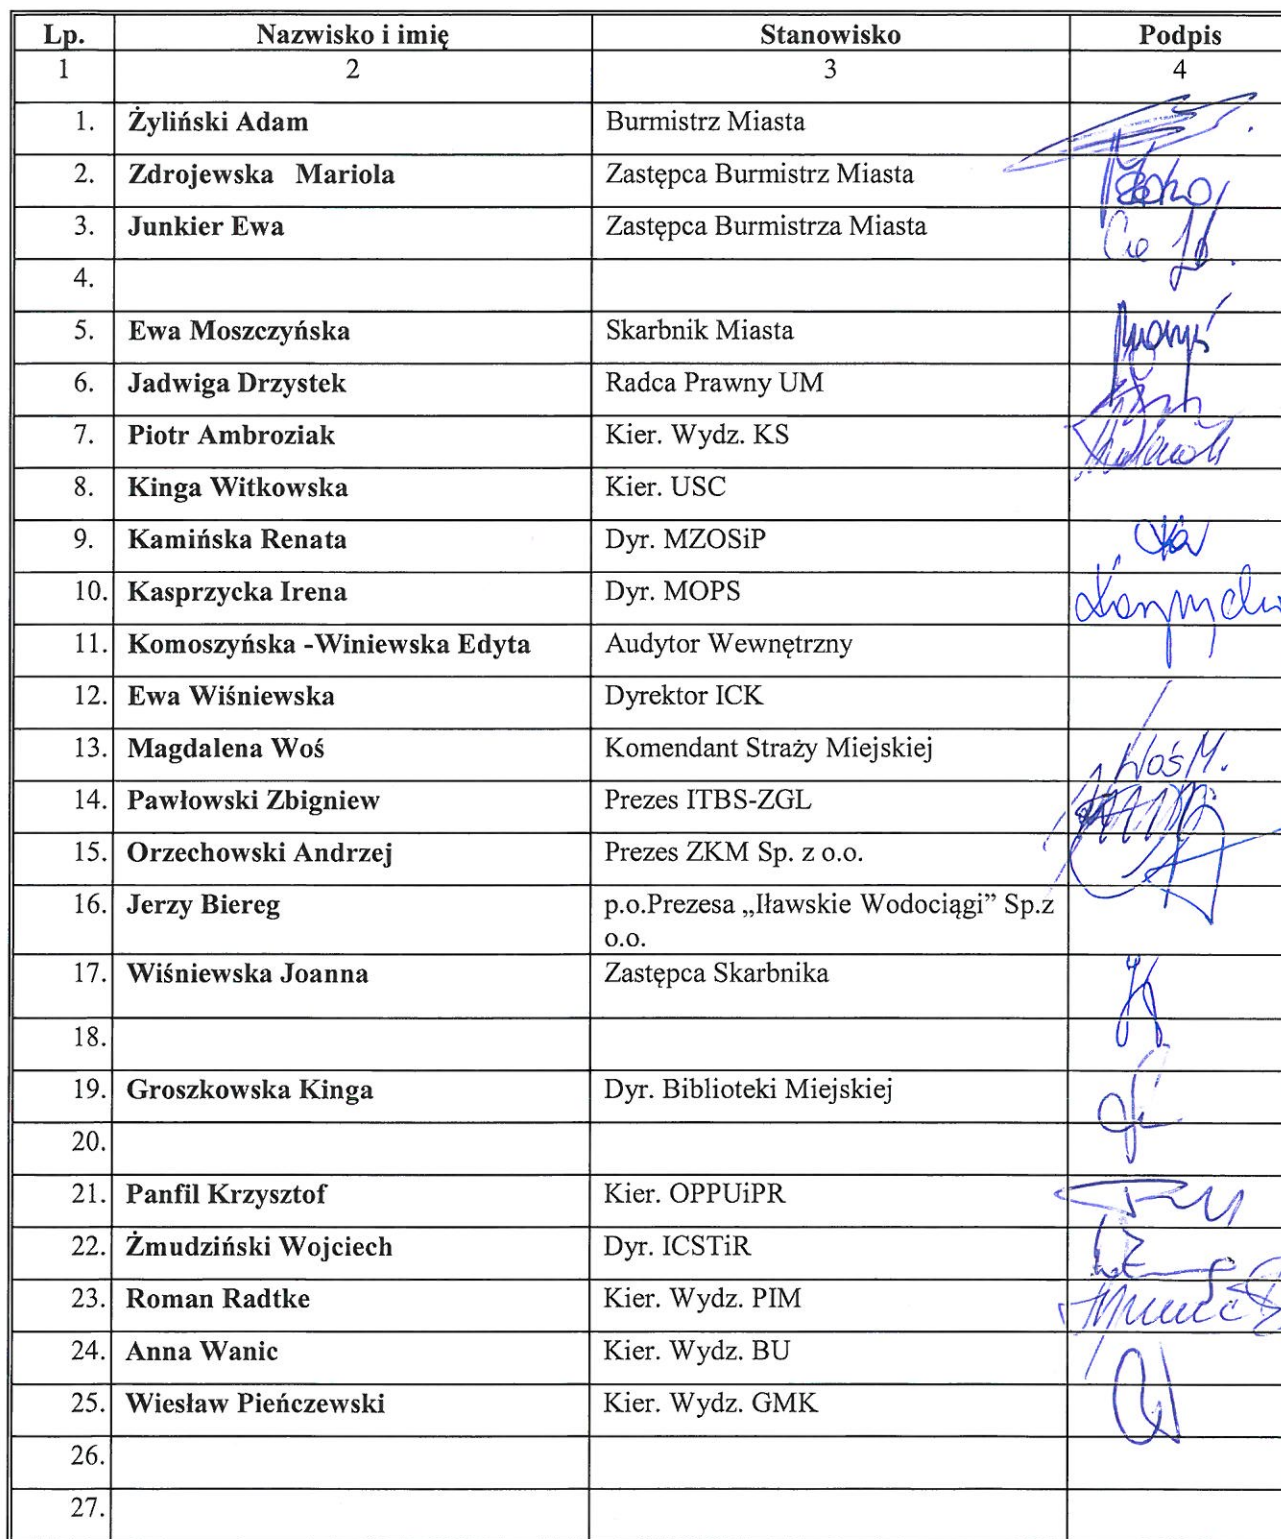 Lp. Nazwisko i imię Stanowisko Podpis
1 2 3 4
1. Żyliński Adam Burmistrz Miasta
2. Zdrojewska Mariola Zastępca Burmistrz Miasta
3. Junkier Ewa Zastępca Burmistrza Miasta
4.
5. Ewa Moszczyńska Skarbnik Miasta
6. Jadwiga Drzystek Radca Prawny UM
7. Piotr Ambroziak Kier. Wydz. KS
8. Kinga Witkowska Kier. USC
9. Kamińska Renata Dyr. MZOSiP
10. Kasprzycka Irena Dyr. MOPS
11. Komoszyńska -Winiewska Edyta Audytor Wewnętrzny
12. Ewa Wiśniewska Dyrektor ICK
13. Magdalena Woś Komendant Straży Miejskiej Woś M.
14. Pawłowski Zbigniew Prezes ITBS-ZGL
15. Orzechowski Andrzej Prezes ZKM Sp. z o.o.
16. Jerzy Biereg p.o.Prezesa „Iławskie Wodociągi” Sp.z
o.o.
17. Wiśniewska Joanna Zastępca Skarbnika
18.
19. Groszkowska Kinga Dyr. Biblioteki Miejskiej
20.
21. Panfil Krzysztof Kier. OPPUiPR
22. Żmudziński Wojciech Dyr. ICSTiR
23. Roman Radtke Kier. Wydz. PIM
24. Anna Wanic Kier. Wydz. BU
25. Wiesław Pieńczewski Kier. Wydz. GMK
26.
27.